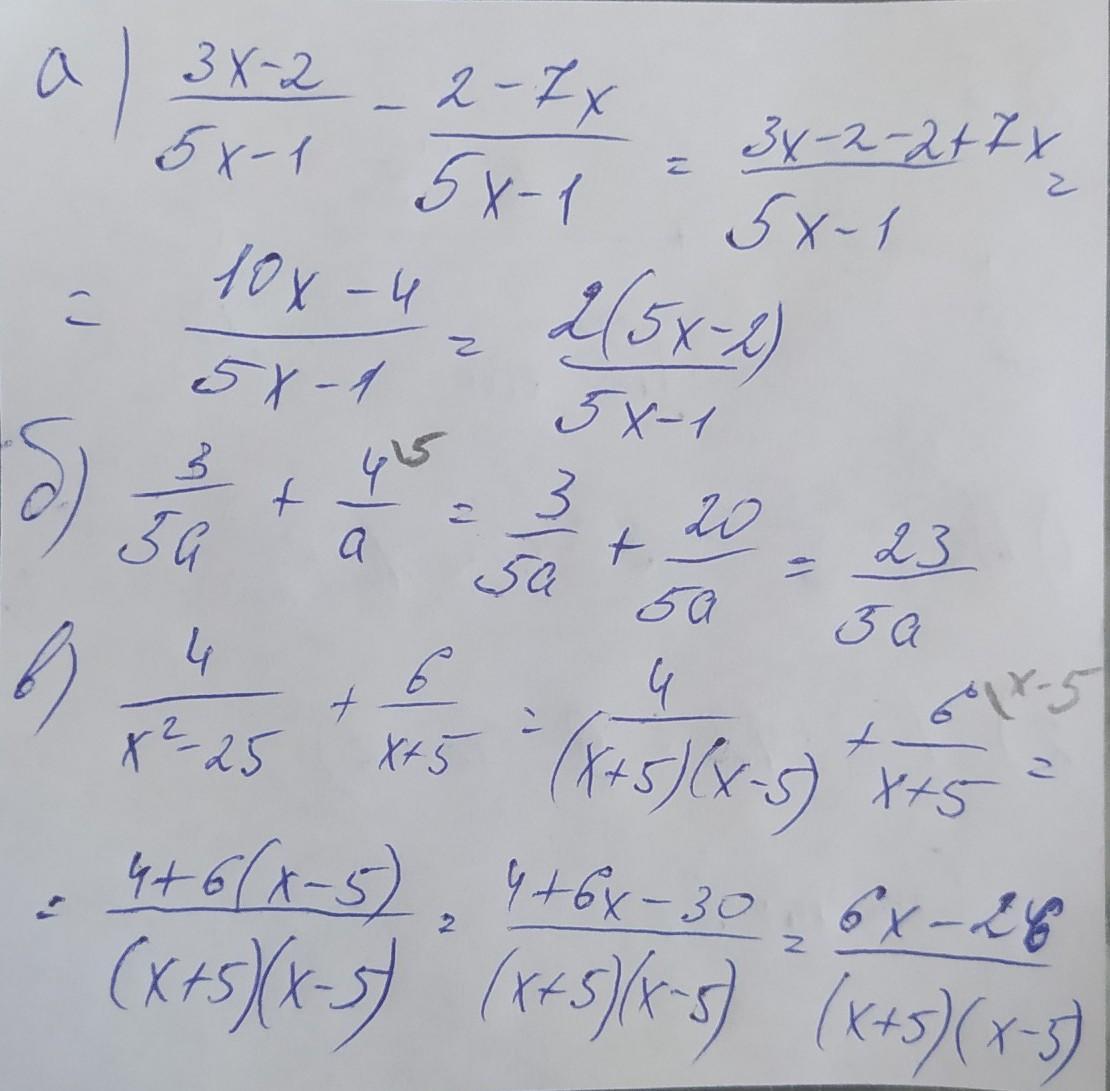 а) \frac{3x-2}{5x-1} - \frac{2-7x}{5x-1} = \frac{3x-2-2+7x}{5x-1} =
= \frac{10x-4}{5x-1} = \frac{2(5x-2)}{5x-1}
б) \frac{3}{5a} + \frac{4}{a}^{\backslash 5} = \frac{3}{5a} + \frac{20}{5a} = \frac{23}{5a}
в) \frac{4}{x^2-25} + \frac{6}{x+5} = \frac{4}{(x+5)(x-5)} + \frac{6}{x+5}^{\backslash x-5} =
= \frac{4+6(x-5)}{(x+5)(x-5)} = \frac{4+6x-30}{(x+5)(x-5)} = \frac{6x-26}{(x+5)(x-5)}